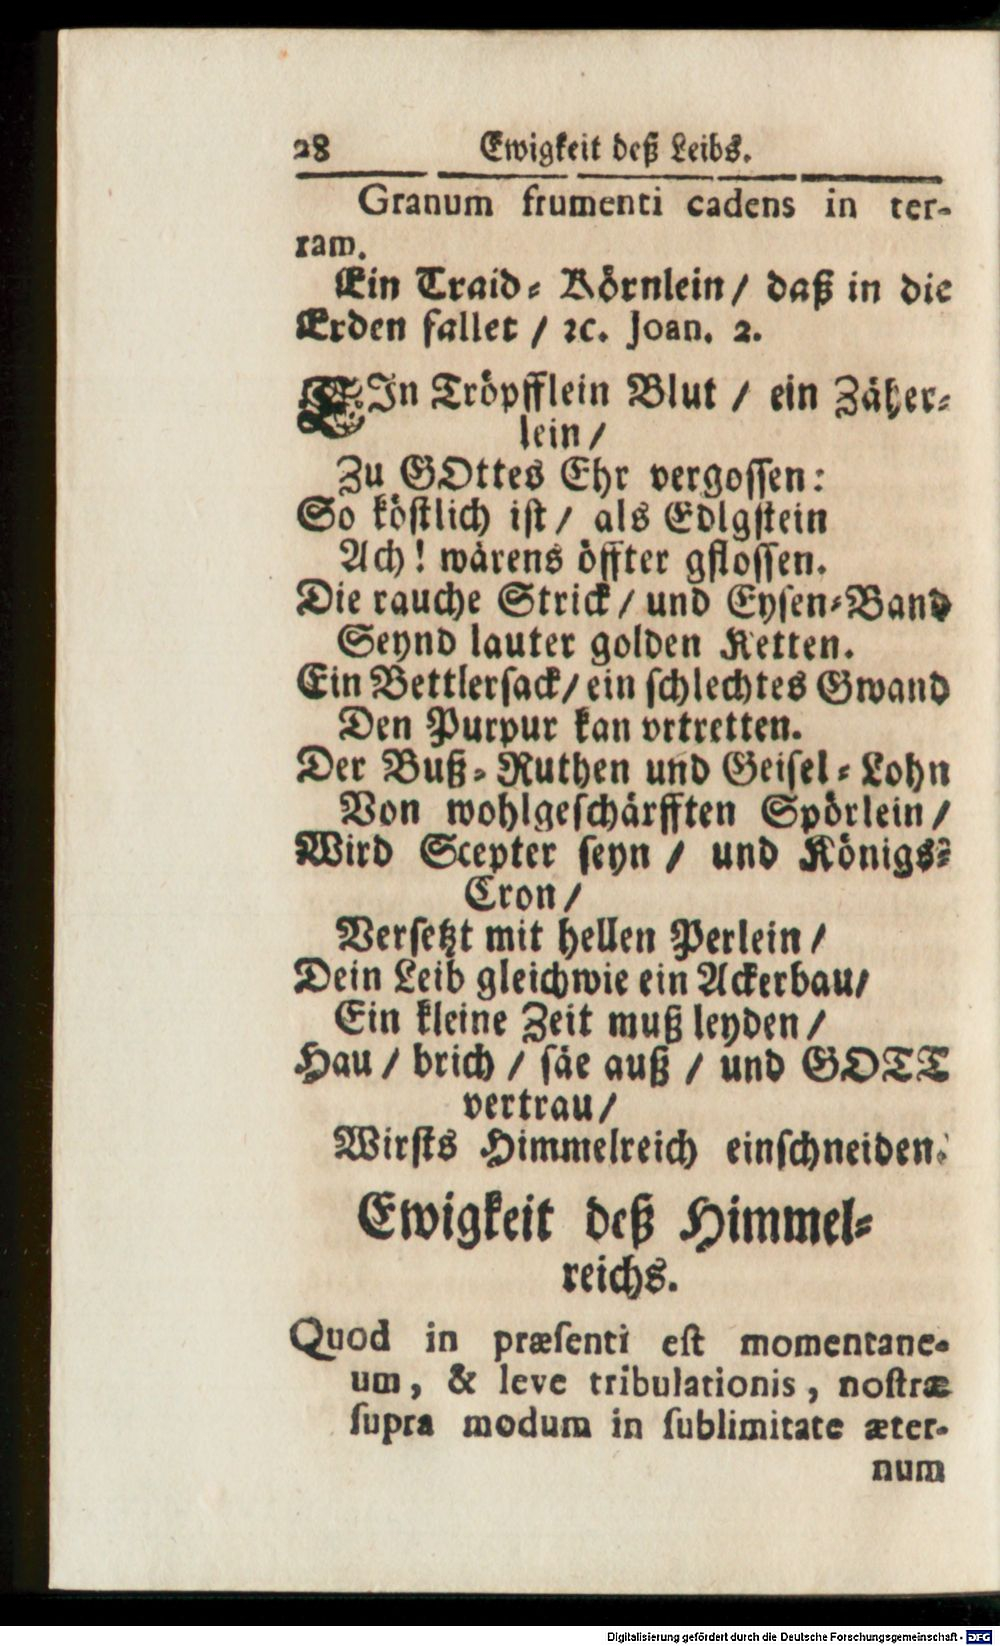 28 Ewigkeit deß Leibs.
Granum frumenti cadens in ter-
ram.
Ein Traid-Körnlein / daß in die
Erden fallet / ꝛc. Joan. 2.
EIn Tröpfflein Blut / ein Zäher-
lein /
Zu GOttes Ehr vergossen:
So köstlich ist / als Edlgstein
Ach! wärens öffter gflossen.
Die rauche Strick / und Eysen-Band
Seynd lauter golden Ketten.
Ein Bettlersack / ein schlechtes Gwand
Den Purpur kan vrtretten.
Der Buß-Ruthen und Geisel-Lohn
Von wohlgeschärfften Spörlein /
Wird Scepter seyn / und Königs-
Cron /
Versetzt mit hellen Perlein /
Dein Leib gleichwie ein Ackerbau /
Ein kleine Zeit muß leyden /
Hau / brich / säe auß / und GOTT
vertrau /
Wirsts Himmelreich einschneiden.
Ewigkeit deß Himmel-
reichs.
Quod in præsenti est momentane-
um, & leve tribulationis, nostræ
supra modum in sublimitate æter-
num
Digitalisierung gefördert durch die Deutsche Forschungsgemeinschaft - DFG